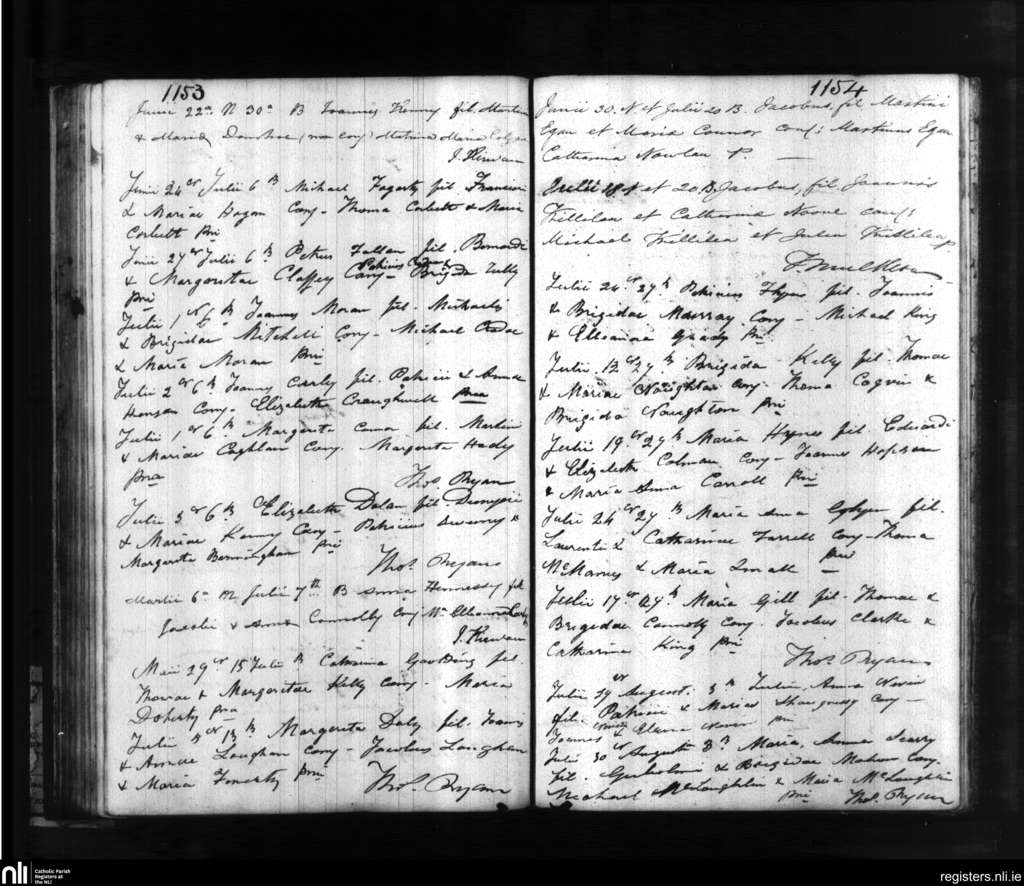 1153
Junii 22a N 30a B Joannis Kenny fil. Martini
& Maria Donohoe (non conj) Matrina Maria
J. Kirwan
Junii 24 et Julii 6 B Michael Fogarty fil Francisci
& Mariae Hogan Conj - Thoma Corbett & Maria
Corbett Pni
Junii 27 et Julii 6 B Petrus Fallon fil. Bernardi
& Margaritae Claffey Conj - Patricius Brigida Tully
Pni
Julii 1 et 6 B Joannes Moran fil. Michaelis
& Brigidae Mitchell Conj - Michael
& Maria Moran Pni
Julii 2 et 6 B Joannes Curly fil. Patricii & Annae
Hanson Conj - Elizabeth Craughwell Pna
Julii 1 et 6 B Margarita fil Martini
& Mariae Coghlan Conj. Margarita Hady
Pna
Thos. Ryan
Julii 3 et 6 B Elizabeth Dolan fil. Dionysii
& Mariae Kenny Conj - Patricius Sweeney &
Margarita Bermingham Pni
Thos Ryan
Martii 6a N Julii 7th B Anna Hennessy fil
& Anna Connolly Conj
J. Kirwan
Maii 29 et 15 Julii B Catharina fil.
Thomae & Margaritae Kelly Conj - Maria
Doherty Pna
Julii et 15 B Margarita Daly fil. Joannis
& Annae Loughan Conj - Jacobus Loughan
& Maria Pni
Thos. Ryan
1154
Junii 30. N et Julii 20 B. Jacobus, fil Martini
Egan et Maria Connor conj: Martinus Egan
Catharina Nowlan P.
Julii 18 N et 20 B. Jacobus, fil. Joannis
Killilea et Catharina Noone conj:
Michael Killilea et Julia Killilea P
Julii 24 et 27 B Patricius Flynn fil. Joannis
& Brigidae Murray Conj - Michael King
& Elleanora Grady Pni
Julii 12 et 27 B Brigida Kelly fil. Thomae
& Mariae Naughton Conj - Thoma &
Brigida Naughton Pni
Julii 19 et 27 B Maria Hynes fil. Eduardi
& Elizabeth Colman Conj - Joannes
& Maria Anna Carroll Pni
Julii 24 et 27 B Maria Anna fil.
Laurentii & Catharinae Farrell Conj - Thoma
McManus & Maria Small Pni
Julii 17 et 27 B Maria Gill fil - Thomae &
Brigidae Connolly Conj. Jacobus Clarke &
Catharina King Pni
Thos Ryan
Julii 29 et August. 3 B Anna Nevin
fil. Patricii & Mariae Shaugnessy Conj -
Joannes & Elena Nevin Pni
Julii 30 et Augusti 3 B Maria Anna Scarry
fil. Gulielmi & Brigidae Mahon Conj.
Michael McLoughlin & Maria McLoughlin
Pni Thos. Ryan
nli
Catholic Parish
Registers at
the NLI
registers.nli.ie